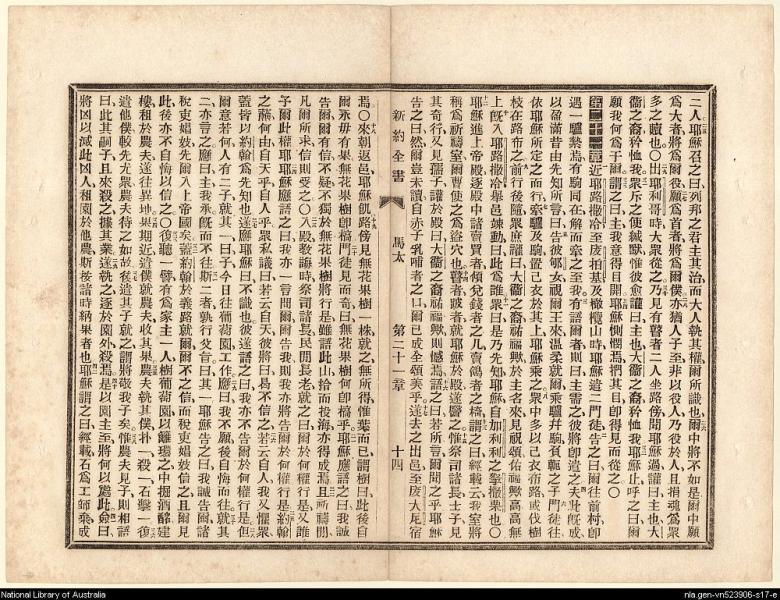 二人耶穌召之曰列邦之君主其治而大人執其權爾所識也爾中將不如是爾中願
爲大者將爲爾役願爲首者將爲爾僕亦猶人子至非以役人乃役於人且捐魂爲衆
多之贖也〇出耶利哥時大衆從之乃見有瞽者二人坐路傍聞耶穌過讙曰主也大
衞之裔矜恤我衆斥之使緘默惟彼愈讙曰主也大衞之裔矜恤我耶穌止呼之曰爾
願我何爲于爾謂之曰主我意得目開耶穌惻憫焉捫其目卽得見而從之〇
第二十一章近耶路撒冷至拍基及橄欖山時耶穌遣二門徒告之曰爾往前村卽
遇一驢縶焉有駒同在解而牽之至我有語爾者則曰主需之彼將卽遣之夫此旣成
以盈昔由先知所言曰告彼郇女視爾王來温柔就爾乘驢幷駒負軛之子門徒往
依耶穌所定之而行牽驢及駒置己衣於其上耶穌乘之衆中多以己衣布路或伐樹
枝在路布之前行後隨衆庶讙曰大衞之裔祜福歟於主名來見頌祜福歟高高無
上旣入耶路撒冷舉邑竦動曰此爲誰衆曰是乃先知耶穌自加利利之拏撒勒也〇
耶穌進上帝殿逐殿中諸賣買者傾兌錢者之几賣鴿者之椅謂之曰經載云我室將
稱爲祈禱室爾曹使之爲盜穴也瞽者跛者就耶穌於殿遂醫之惟祭司諸長士子見
其奇行又見孺子讙於殿曰大衞之裔祜福歟則憾焉語之曰若所言爾聞之乎耶穌
告之曰然爾豈未讀自赤子乳哺者之口爾已成全頌美乎遂去之出邑至大尼宿
新約全書 馬太 第二十一章 十四
焉〇來朝返邑耶穌飢路傍見無花果樹一株就之無所得惟葉而已謂樹曰此後自
爾永毋有果無花果樹卽槁門徒見而奇曰無花果樹何卽槁乎耶穌應語之曰我誠
告爾爾有信不疑不獨於無花果樹將行是雖語此山拾而投海亦得成焉且祈禱間
凡爾所求信則受之〇入殿敎誨時祭司諸長民間長老就之曰爾於何權行是又誰
予爾此權耶耶穌應語之曰我亦一言問爾爾告我則我亦將告爾於何權行是約翰
之蘸何由自天乎自人乎衆私議曰若云自天彼將曰曷不信之若云自人我又懼衆
蓋皆以約翰爲先知也遂應耶穌曰不識也彼遂語之曰我亦不告爾於何權行是但
爾意若何人有二子就其一曰子今日往葡萄園工作應曰我不願後自悔而往就其
二亦言之應曰主我承旣而不往斯二者孰行父旨曰其一耶穌告之曰我誠告爾諸
稅吏娼妓先爾入上帝國矣蓋約翰於義路就爾爾不之信而稅吏娼妓信之且爾見
此後亦不自悔以信之〇復聽一譬有爲家主一人樹葡萄園以籬環之中掘酒醡建
樓租於農夫遂往異地果期近遣僕就農夫收其果農夫執其僕扑一殺一石擊一復
遣他僕較先尤衆農夫待之如故後遣其子就之謂將敬我子矣惟農夫見子則相語
曰此其嗣子且來殺之據其業遂執之逐於園外殺焉是以園主至將何以處此僉曰
將凶以滅此凶人租園於他農斯按諸時納果者也耶穌謂之曰經載石爲工師棄成
National Library of Australia
nla.gen-vn523906-s17-e